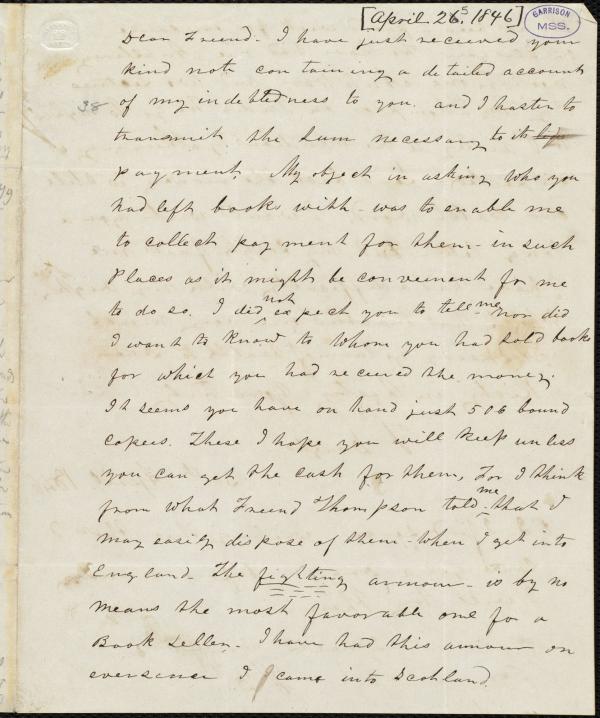 [April 26⁵, 1846]
GARRISON
MSS.
38
Dear Freend - I have just received your
kind note containing a detailed account
of my indebtedness to you. and I hasten to
transmit the sum necessary to its
payment. My object in asking who you
had left books with - was to enable me
to collect payment for them - in such
Places as it might be convenient for me
to do so. I did not expect you to tell me nor did
I want to know to whom you had sold books
for which you had received the money.
It seems you have on hand just 506 bound
copies. These I hope you will keep unless
you can get the cash for them, For I think
from what Freend Thompson told me that I
may easily dispose of them - when I get into
England. The fighting armour - is by no
means the most favorable one for a
Book Seller - I have had this armour on
ever sence I came into Scotland.